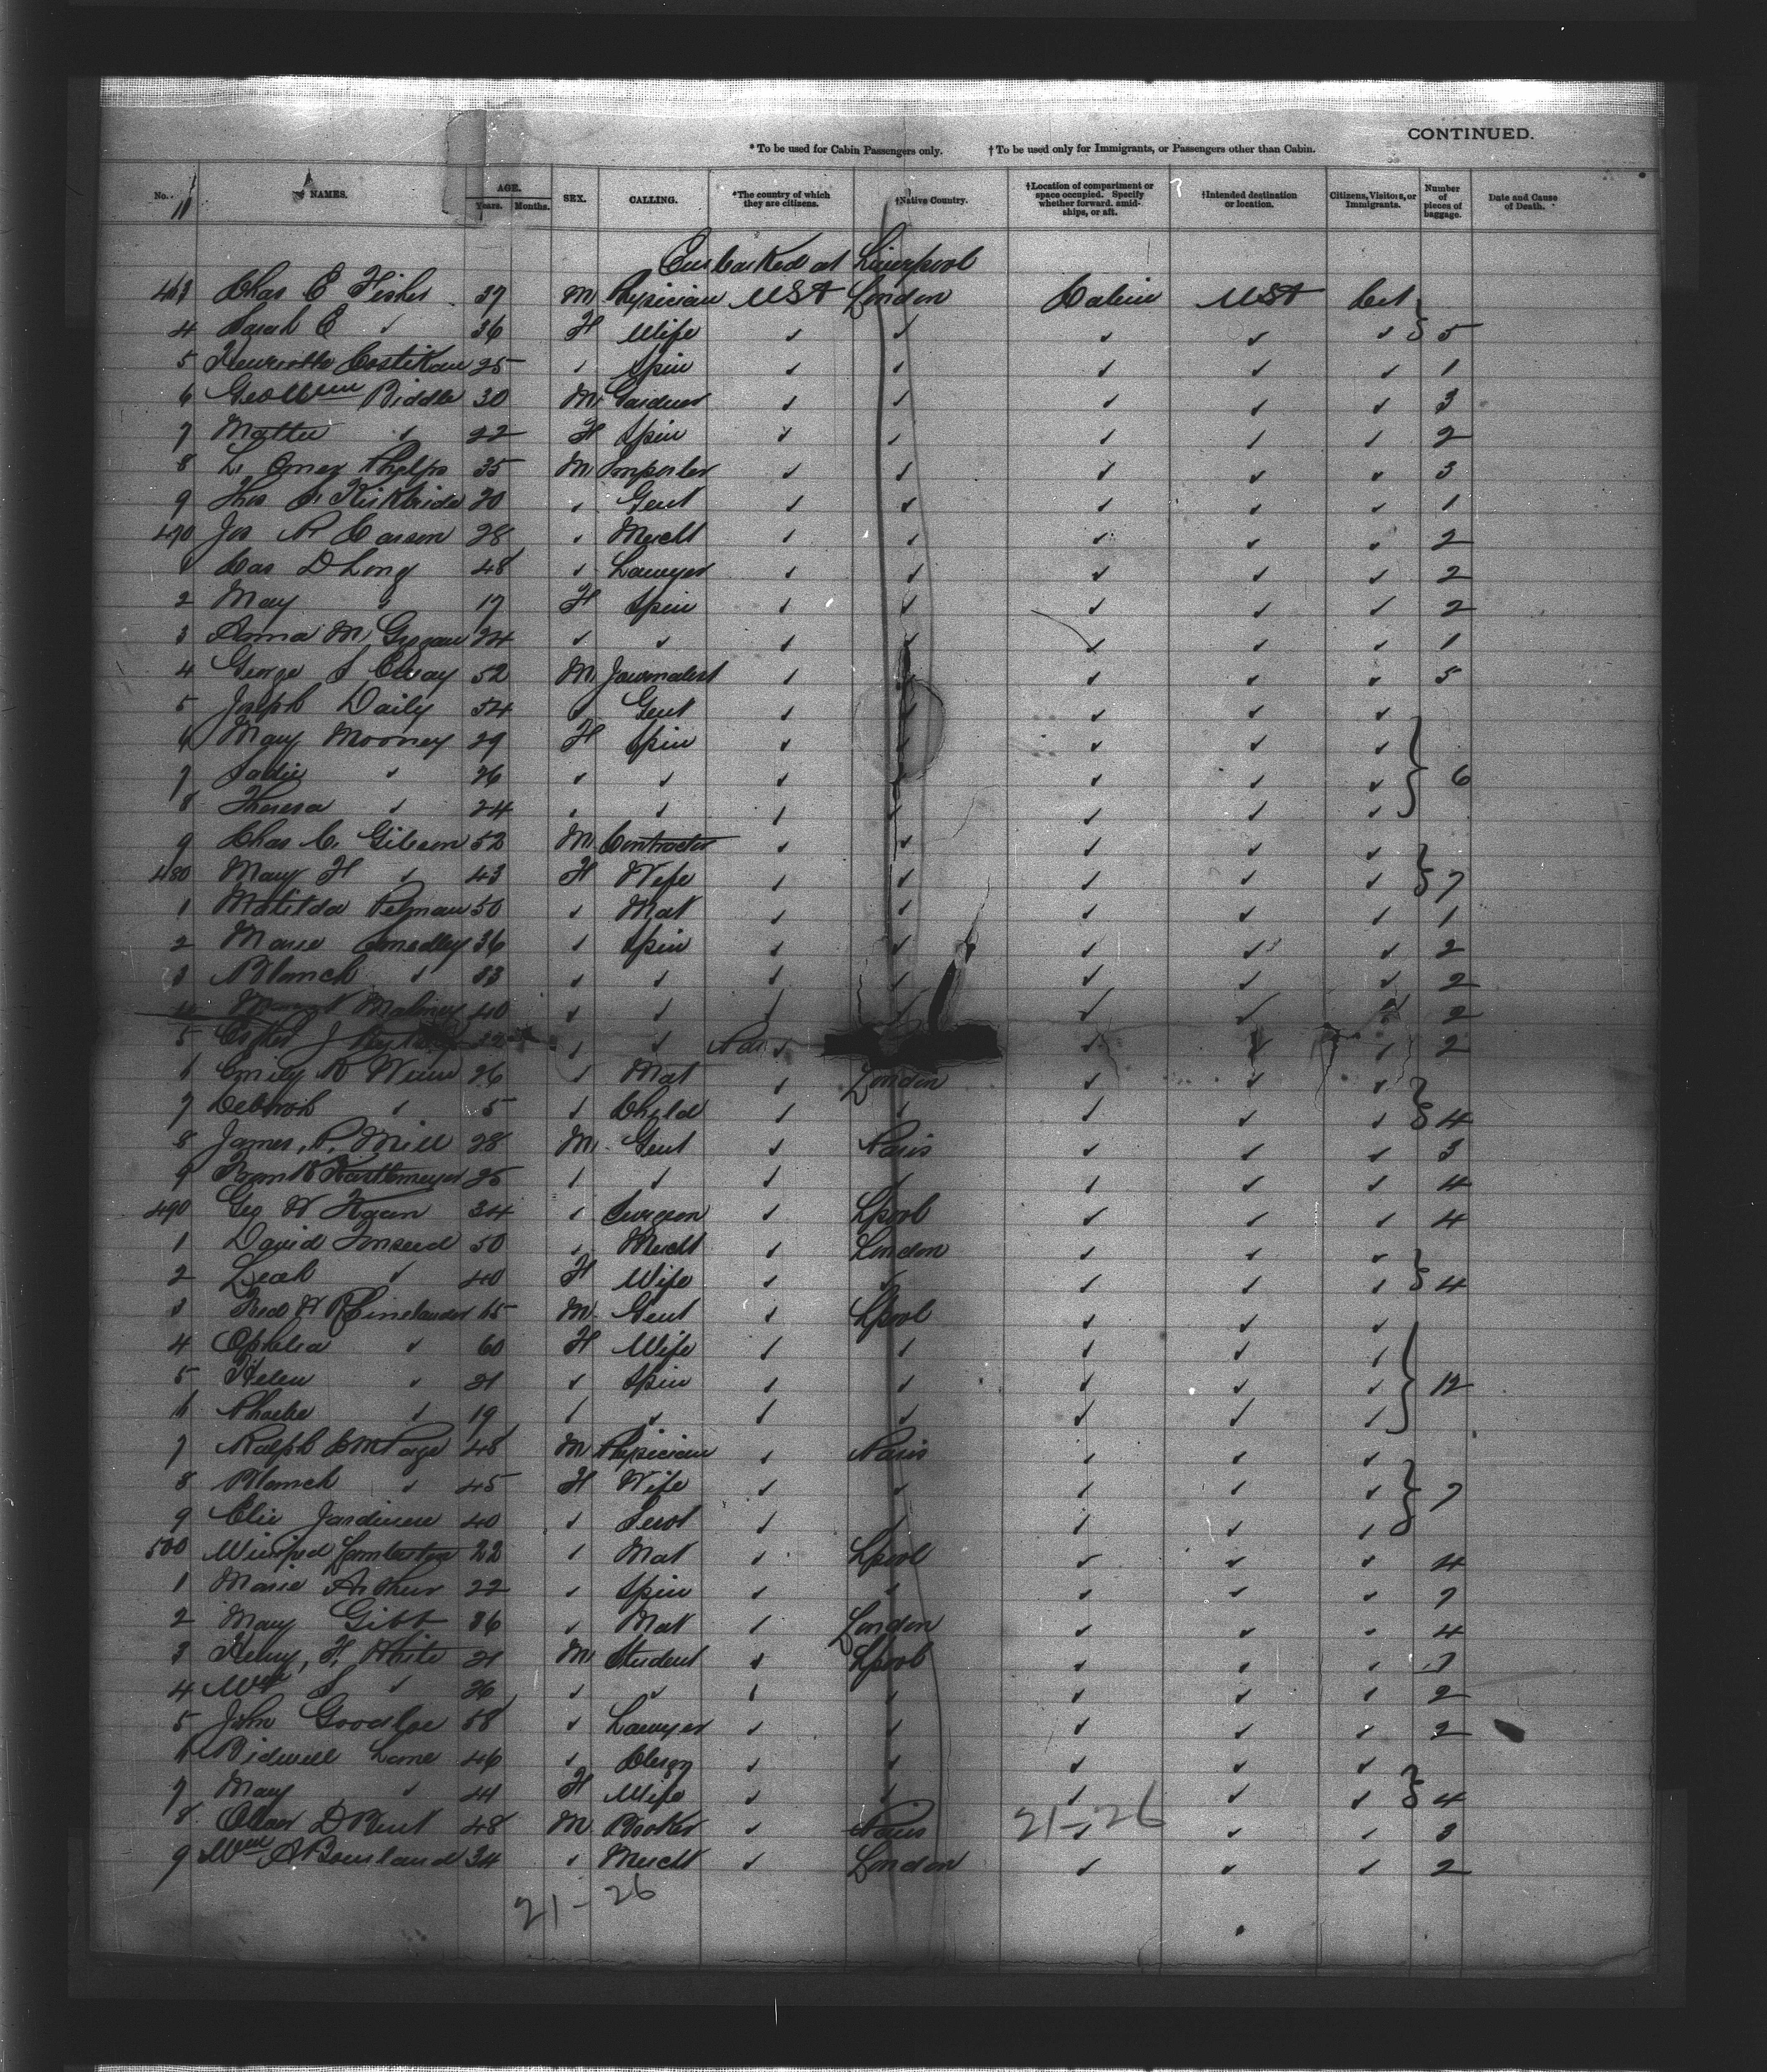 CONTINUED.
* To be used for Cabin Passengers only. † To be used only for Immigrants, or Passengers other than Cabin.
No. NAMES. AGE. Years. Months. SEX. CALLING. *The country of which they are citizens. †Native Country. †Location of compartment or space occupied. Specify whether forward, amidships, or aft. †Intended destination or location. Citizens, Visitors, or Immigrants. Number of pieces of baggage. Date and Cause of Death.
Embarked at Liverpool
463 Chas E Fisher 37 M Physician USA London Cabin USA Cit
4 Sarah E ✓ 36 F Wife ✓ ✓ ✓ ✓ ✓ } 5
5 Henrietta Costikan 25 ✓ Spin ✓ ✓ ✓ ✓ ✓ 1
6 Geo Wm Biddle 30 M Gardner ✓ ✓ ✓ ✓ ✓ 3
7 Mattie ✓ 22 F Spin ✓ ✓ ✓ ✓ ✓ 2
8 L. Omer Phelps 35 M Importer ✓ ✓ ✓ ✓ ✓ 3
9 Thos S. Kirkbride 20 ✓ Gent ✓ ✓ ✓ ✓ ✓ 1
470 Jos R Carson 28 ✓ Mercht ✓ ✓ ✓ ✓ ✓ 2
1 D Long 48 ✓ Lawyer ✓ ✓ ✓ ✓ ✓ 2
2 May ✓ 17 F Spin ✓ ✓ ✓ ✓ ✓ 2
3 Anna M. Grogan 24 ✓ ✓ ✓ ✓ ✓ ✓ ✓ 1
4 George S 52 M Journalist ✓ ✓ ✓ ✓ ✓ 5
5 Joseph Daily 54 ✓ Gent ✓ ✓ ✓ ✓ ✓
6 Mary Mooney 29 F Spin ✓ ✓ ✓ ✓ ✓
7 Sadie ✓ 26 ✓ ✓ ✓ ✓ ✓ ✓ ✓ } 6
8 Theresa ✓ 24 ✓ ✓ ✓ ✓ ✓ ✓ ✓
9 Chas C. Gibson 52 M Contractor ✓ ✓ ✓ ✓ ✓
480 Mary H ✓ 43 F Wife ✓ ✓ ✓ ✓ ✓ } 7
1 Matilda 50 ✓ Mat ✓ ✓ ✓ ✓ ✓ 1
2 Marie Smedley 36 ✓ Spin ✓ ✓ ✓ ✓ ✓ 2
3 Blanch ✓ 33 ✓ ✓ ✓ ✓ ✓ ✓ ✓ 2
4 40 ✓ ✓ ✓ ✓ ✓ ✓ ✓ 2
5 J ✓ ✓ ✓ ✓ ✓ ✓ 2
6 Emily R Winn 26 ✓ Mat ✓ London ✓ ✓ ✓
7 Deborah ✓ 5 ✓ Child ✓ ✓ ✓ ✓ ✓ } 4
8 James P. Mill 28 M Gent ✓ Paris ✓ ✓ ✓ 3
9 Frank 25 ✓ ✓ ✓ ✓ ✓ ✓ ✓ 4
490 Geo W 34 ✓ Surgeon ✓ Lpool ✓ ✓ ✓ 4
1 David 50 ✓ Mercht ✓ London ✓ ✓ ✓
2 Leah ✓ 40 F Wife ✓ ✓ ✓ ✓ ✓ } 4
3 Fred W Rhinelander 65 M Gent ✓ Lpool ✓ ✓ ✓
4 Ophelia ✓ 60 F Wife ✓ ✓ ✓ ✓ ✓
5 Helen ✓ 21 ✓ Spin ✓ ✓ ✓ ✓ ✓ } 12
6 Phoebe ✓ 19 ✓ ✓ ✓ ✓ ✓ ✓ ✓
7 Ralph Page 48 M Physician ✓ Paris ✓ ✓ ✓
8 Blanch ✓ 45 F Wife ✓ ✓ ✓ ✓ ✓ } 7
9 Jardinere 40 ✓ Servt ✓ ✓ ✓ ✓ ✓
500 Winifred Lamberton 22 ✓ Mat ✓ Lpool ✓ ✓ ✓ 4
1 Marie Arthur 22 ✓ Spin ✓ ✓ ✓ ✓ ✓ 7
2 Mary Gibb 36 ✓ Mat ✓ London ✓ ✓ ✓ 4
3 Henry, F, White 21 M Student ✓ Lpool ✓ ✓ ✓ 7
4 Wm S ✓ 26 ✓ ✓ ✓ ✓ ✓ ✓ ✓ 2
5 John Goodloe 58 ✓ Lawyer ✓ ✓ ✓ ✓ ✓ 2
6 Bidwell Lane 46 ✓ Clergy ✓ ✓ ✓ ✓ ✓
7 Mary ✓ 44 F Wife ✓ ✓ ✓ ✓ ✓ } 4
8 48 M ✓ Paris ✓ ✓ ✓ 3
9 Wm A Bowland 34 ✓ Mercht ✓ London ✓ ✓ ✓ 2
21-26
21-26